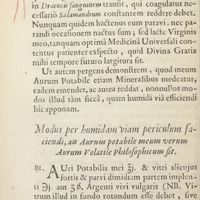 in Draconis sanguinem transit, qui coagulatus ne-
cessariò Salamandrum constantem reddere debet.
Nunquam quidem hactenus eum paravi, nec pa-
randi occasionem nactus sum; sed facte Virginis
meo, tanquam optimâ Medicinâ Universali con-
tentus patienter exspecto, quid Divina Gratia
mihi tempore futuro largitura sit.
Ut autem pergens demonstrem, quod meum
Aurum Potabile etiam Mineralibus medeatur,
eadem emendet, ac in aurum reddat, nonnullos mo-
dos illud tàm siccâ, quam humidâ viâ efficiendi
hic apponam.
Modus per humidam viam periculum fa-
ciendi, an Aurum potabile meum verum
Aurum Volatile Philosophicum sit.
℞. AUri Potabilis mei ℥j. & vitri alicujus
fortis & parvi dimidiam partem implen-
ti ℥j. aut ʒß. Argenti vivi vulgaris (NB. Vi-
trum illud in fundo rotundum esse debet, sive